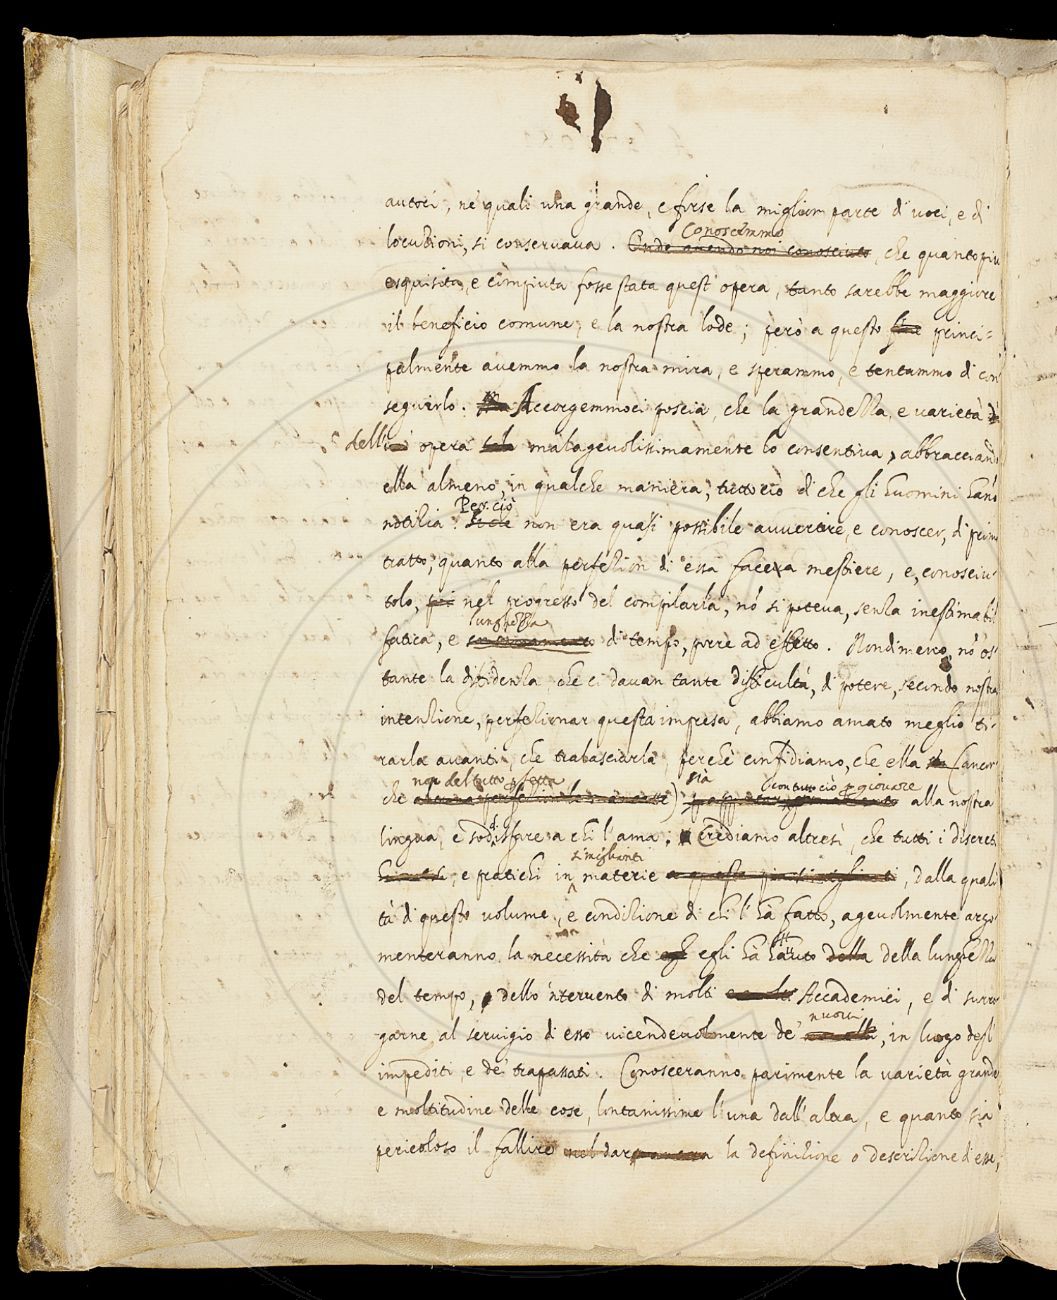 autori, ne' quali una grande, e forse la miglior parte di voci, e di
Conoscemmo
locuzioni, si conservava. Onde avendo noi conosciuto, che quanto più
esquisita, e compiuta fosse stata quest' opera, tanto sarebbe maggiore
il beneficio comune, e la nostra lode; però a questo princi-
palmente avemmo la nostra mira, e sperammo, e tentammo di con
seguirlo. Accorgemmoci poscia, che la grandezza, e varietà
dell' opera malagevolissimamente lo consentiva, abbracciando
ella almeno, in qualche maniera, tutto ciò di che gli huomini hanno
Per ciò
notizia. non era quasi possibile avvertire, e conoscer, di primo
tratto, quanto alla perfezion di essa faceva mestiere, e, conosciu-
tolo, nel progresso del compilarla, nō si poteva, senza inestimabil
lunghezza
fatica, e di tempo, porre ad effetto. Nondimeno, nō os-
tante la diffidenza, che ci davan tante difficultà, di potere, secondo nostra
intenzione, perfezionar questa impresa, abbiamo amato meglio ti-
rarla avanti, che tralasciarla, perché confidiamo, che ella (ancor
non del tutto pfetta sia con tutto ciò p giovare
che ) alla nostra
lingua, e sodisfare a chi l'ama; crediamo altresì, che tutti i discreti
simiglianti
, e pratichi in materie, dalla quali
tà di questo volume, e condizione di chi l'ha fatto, agevolmente argo
menteranno la necessità che egli ha hauto della lunghezza
del tempo, dello 'ntervento di molti Accademici, e di surro
nuovi
garne, al servigio di esso vicendevolmente de', in luogo degl'
impediti, e de' trapassati. Conosceranno parimente la varietà grande
e moltitudine delle cose, lontanissime l'una dall'altra, e quanto sia
pericoloso il fallire la definizione o descrizione d'esse,